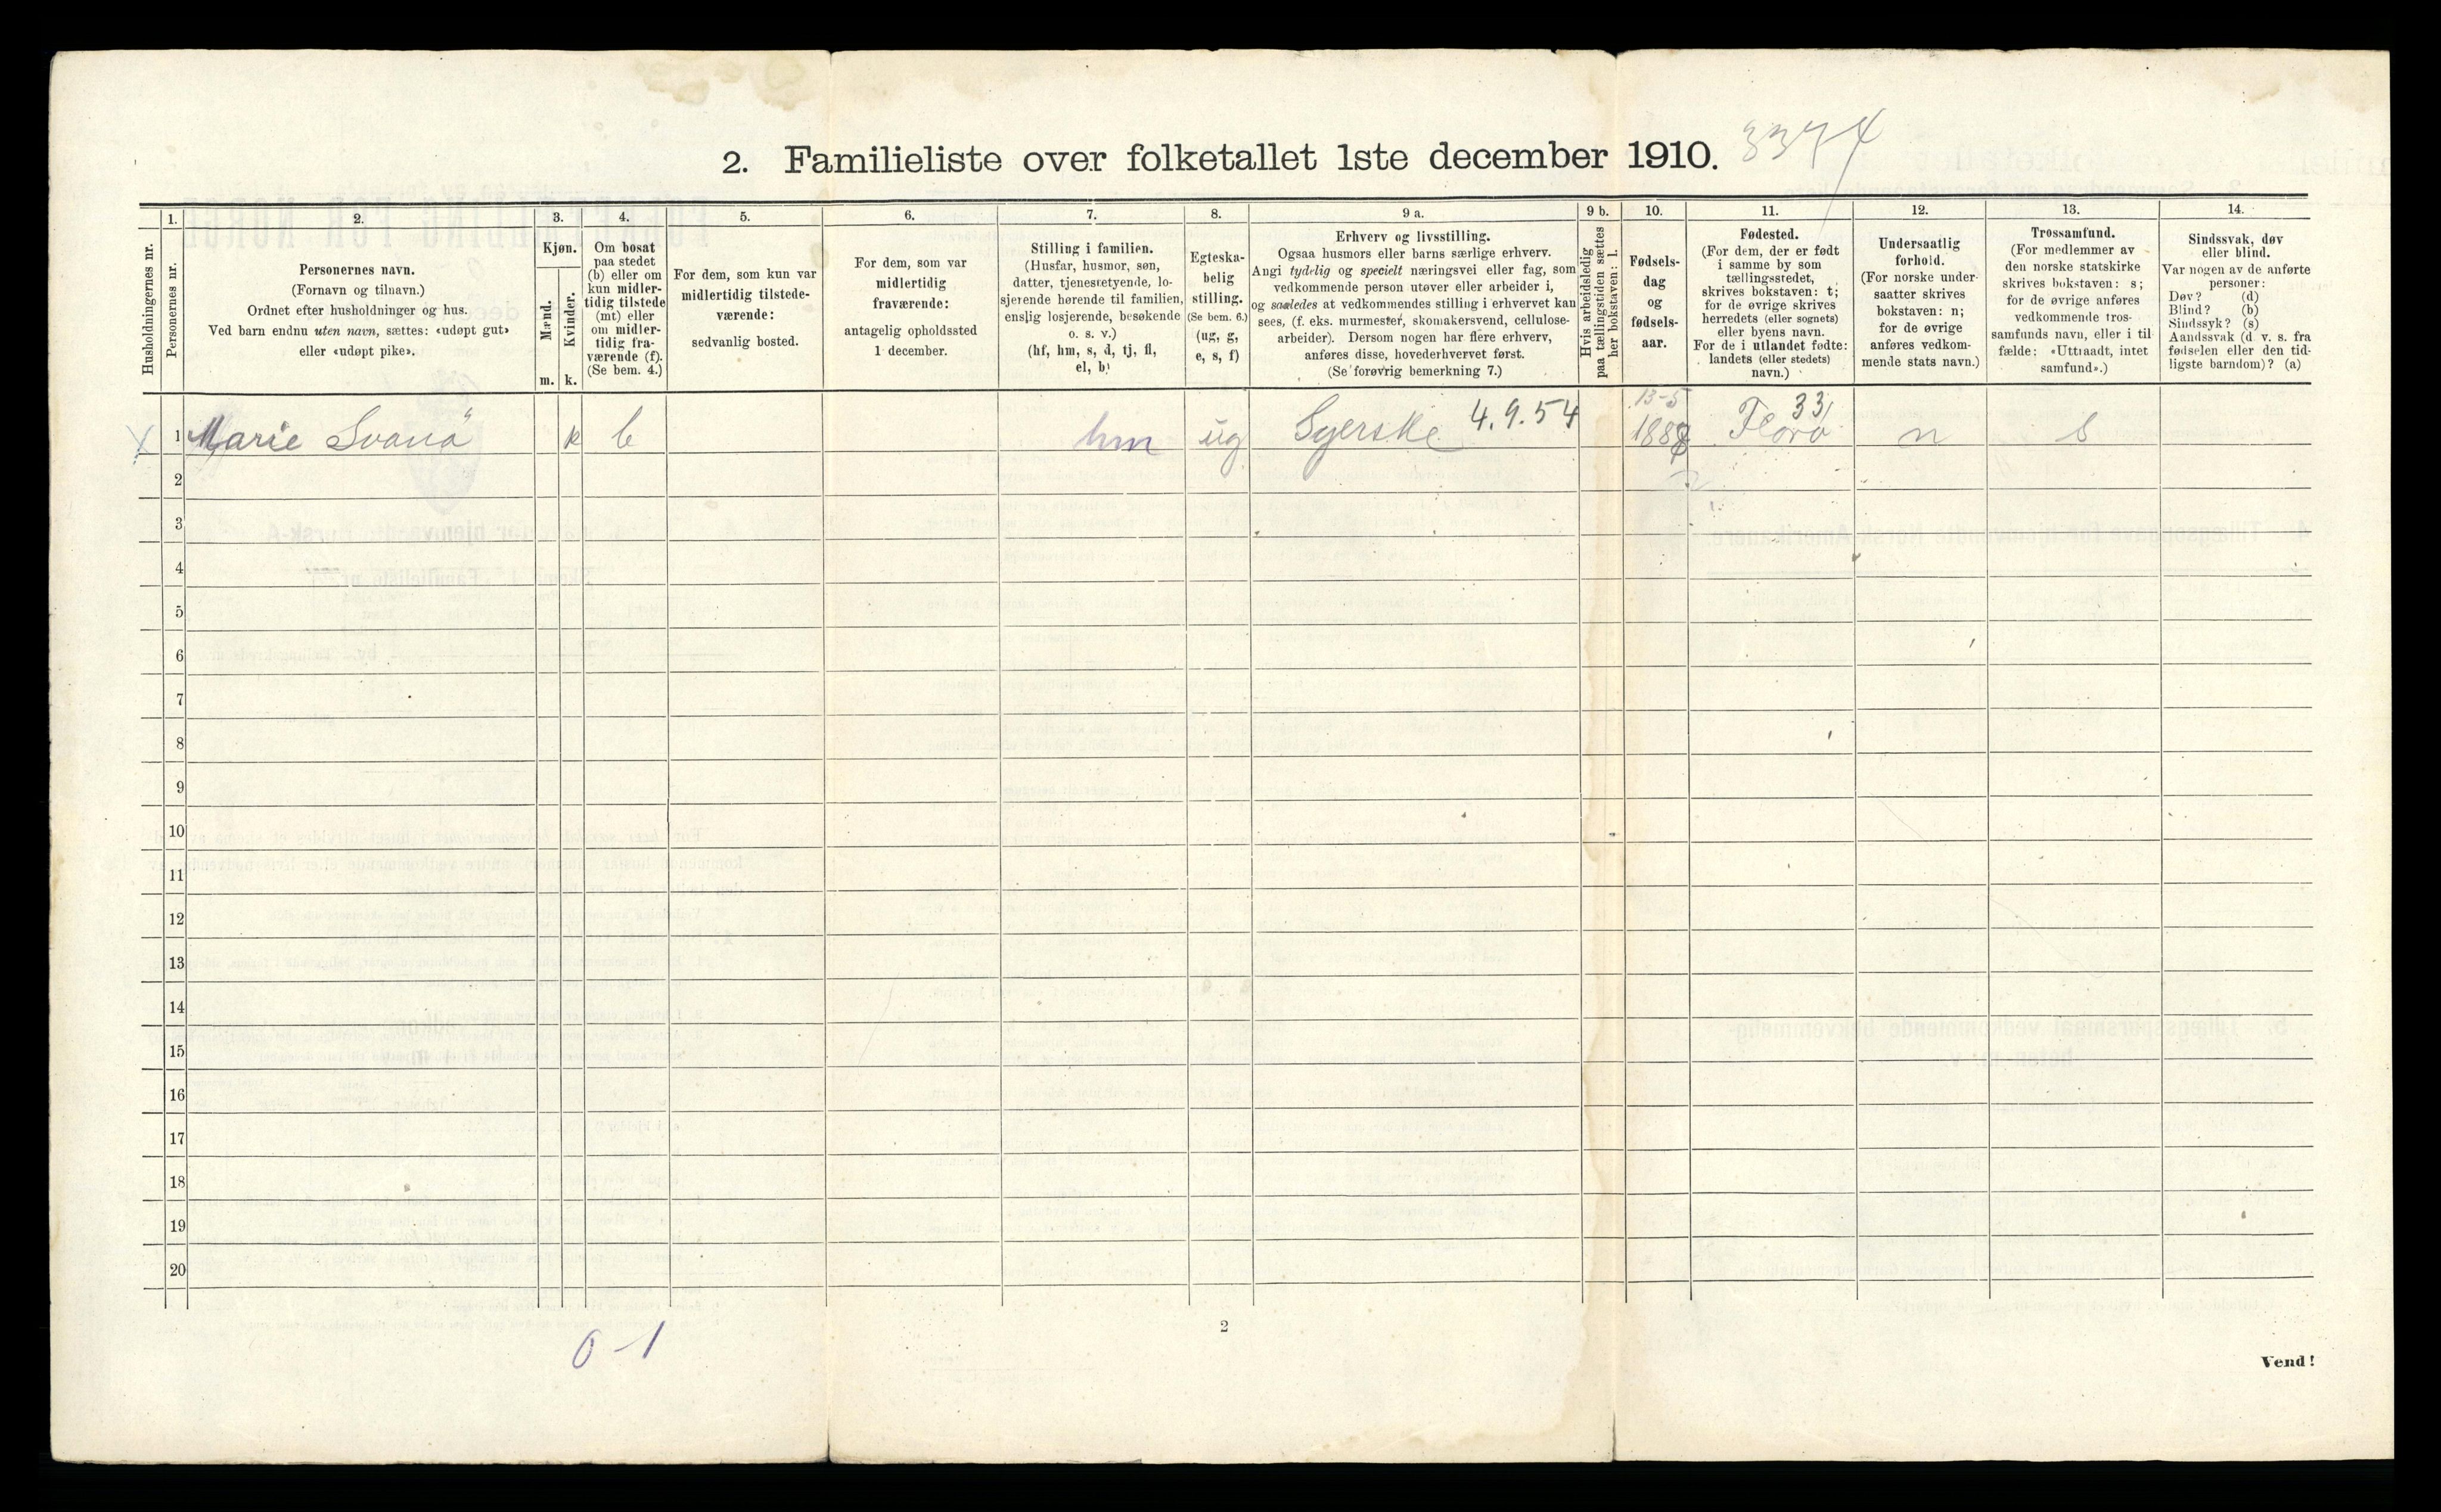 2. Familieliste over folketallet 1ste december 1910. 3374
Husholdningernes nr.
1.
Personernes nr.
2.
Personernes navn.
(Fornavn og tilnavn.)
Ordnet efter husholdninger og hus.
Ved barn endnu uten navn, sættes: «udøpt gut»
eller «udøpt pike».
3.
Kjøn.
Mænd.
Kvinder.
m. k.
4.
Om bosat
paa stedet
(b) eller om
kun midler-
tidig tilstede
(mt) eller
om midler-
tidig fra-
værende (f).
(Se bem. 4.)
5.
For dem, som kun var
midlertidig tilstede-
værende:
sedvanlig bosted.
6.
For dem, som var
midlertidig
fraværende:
antagelig opholdssted
1 december.
7.
Stilling i familien.
(Husfar, husmor, søn,
datter, tjenestetyende, lo-
sjerende hørende til familien,
enslig losjerende, besøkende
o. s. v.)
(hf, hm, s, d, tj, fl,
el, b)
8.
Egteska-
belig
stilling.
(Se bem. 6.)
(ug, g,
e, s, f)
9 a.
Erhverv og livsstilling.
Ogsaa husmors eller barns særlige erhverv.
Angi tydelig og specielt næringsvei eller fag, som
vedkommende person utøver eller arbeider i,
og saaledes at vedkommendes stilling i erhvervet kan
sees, (f. eks. murmester, skomakersvend, cellulose-
arbeider). Dersom nogen har flere erhverv,
anføres disse, hovederhvervet først.
(Se forøvrig bemerkning 7.)
9 b.
Hvis arbeidsledig
paa tællingstiden sættes
her bokstaven: l.
10.
Fødsels-
dag
og
fødsels-
aar.
11.
Fødested.
(For dem, der er født
i samme by som
tællingsstedet,
skrives bokstaven: t;
for de øvrige skrives
herredets (eller sognets)
eller byens navn.
For de i utlandet fødte:
landets (eller stedets)
navn.)
12.
Undersaatlig
forhold.
(For norske under-
saatter skrives
bokstaven: n;
for de øvrige
anføres vedkom-
mende stats navn.)
13.
Trossamfund.
(For medlemmer av
den norske statskirke
skrives bokstaven: s;
for de øvrige anføres
vedkommende tros-
samfunds navn, eller i til-
fælde: «Uttraadt, intet
samfund».)
14.
Sindssvak, døv
eller blind.
Var nogen av de anførte
personer:
Døv? (d)
Blind? (b)
Sindssyk? (s)
Aandssvak (d. v. s. fra
fødselen eller den tid-
ligste barndom)? (a)
13-5 33
X 1 Marie Svanö k b hm ug Syerske 4.9.54 1888 Florø n s
2
3
4
5
6
7
8
9
10
11
12
13
14
15
16
17
18
19
20
0-1
2
Vend!